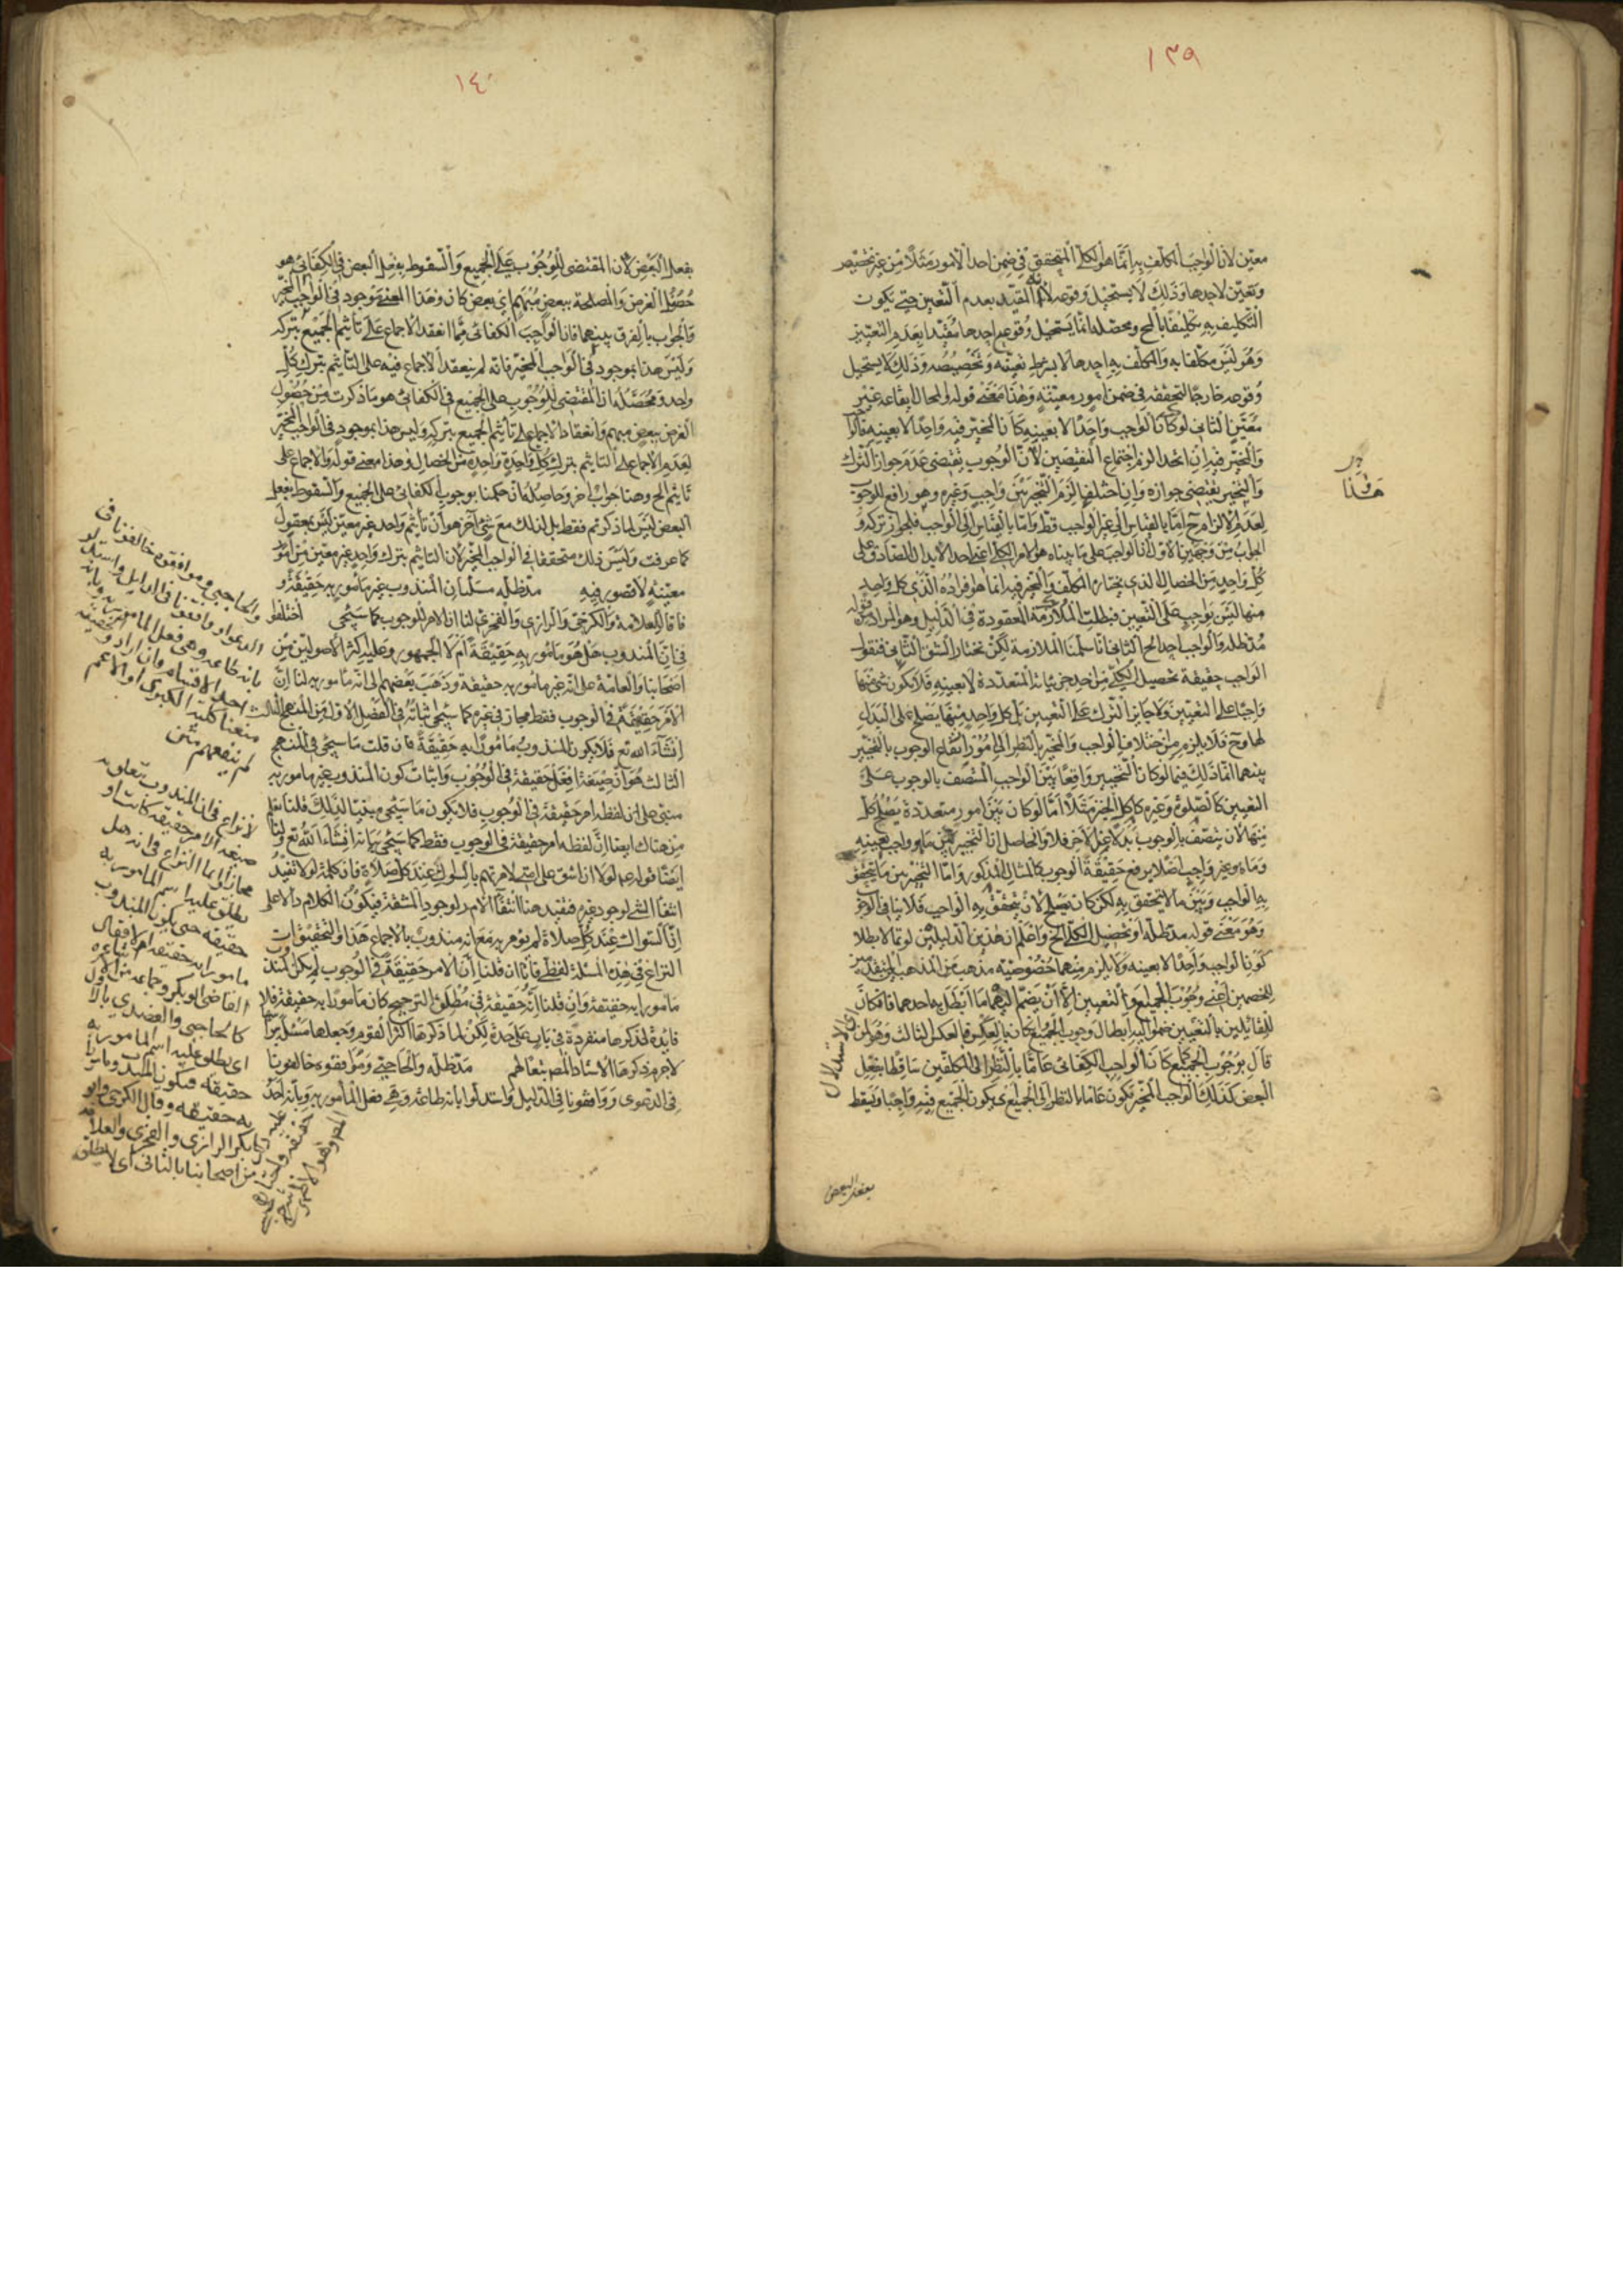 ١٣٩
معين لان الواجب المكلف به انما هو الكلي المتحقق في ضمن احد الامور مثلا من غير تخصيص
وتعين لاحدها وذلك لا يستحيل وقوعه لانه المقيد بعدم التعين حتى يكون
التكليف به تكليفا بالمحال ومحصله انما يستحيل وقوع احدها مقيدا بعدم التعيين
وهو ليس مكلفا به والمكلف به احدها لا بشرط تعينه وتخصيصه وذلك لا يستحيل
وقوعه خارجا لتحققه في ضمن امور معينة وهذا معنى قوله والمحال ايقاعه غير
معين الثاني لو كان الواجب واحدا لا بعينه كان المخير فيه واحدا لا بعينه فالواجب
والمخير فيه ان اتحدا لزم اجتماع النقيضين لان الوجوب يقتضي عدم جواز الترك
والتخيير يقتضي جوازه وان اختلفا لزم التخيير بين واجب وغيره وهو رافع للوجوب
لعدم الالزام ح اما بالقياس الى غير الواجب قط واما بالقياس الى الواجب فلجواز تركه و
الجواب من وجهين الاول ان الواجب على ما بيناه هو الامر الكلي اعني احد الابدال الصادق على
كل واحد من الخصال الذي يختاره المكلف والمخير فيه انما هو افراده الذي كل واحد
منها ليس بواجب على التعيين فبطلت الملازمة المعقودة في الدليل وهو المراد بقوله
مد ظله والواجب احد الخ الثاني انا سلمنا الملازمة لكن نختار الشق الثاني فنقول
الواجب حقيقة تحصيل الكلي من احد جزئياته المتعددة لا بعينه فلا يكون شئ منها
واجبا على التعيين ولا جايز الترك على التعيين بل كل واحد منها يصلح على البدل
لها وح فلا يلزم من اختلاف الواجب والمخير بالنظر الى امور ارتفاع الوجوب بالتخيير
بينهما انما ذلك فيما لو كان التخيير واقعا بين الواجب المتصف بالوجوب على
التعيين كالصلوة وغيره كاكل الخبز مثلا اما لو كان بين امور متعددة يصلح كل
منها لان يتصف بالوجوب بدلا عن الاخر فلا والحاصل ان التخيير بين ما هو واجب بعينه
وما هو غير واجب اصلا يرفع حقيقة الوجوب كالمثال المذكور واما التخيير بين ما يتحقق
به الواجب وبين ما لا يتحقق به لكن كان يصلح لان يتحقق به الواجب فلا ينافي الوجوب
وهو معنى قوله مد ظله او تحصيل الكلي الخ واعلم ان هذين الدليلين لو تما لابطلا
كون الواجب واحدا لا بعينه ولا يلزم منهما خصوصية مذهب من المذهبين
للخصمين اعني وجوب الجميع والتعيين الا ان يضم اليهما ما ابطل به احدهما فافكان
للقائلين بالتعيين ضموا اليه ابطال وجوب الجميع وان كان بالعكس فبالعكس الثالث وهو لمن
قال بوجوب الجميع كما كان الواجب الكفائي عاما بالنظر الى المكلفين ساقطا بفعل
البعض كذلك الواجب المخير يكون عاما بالنظر الى الجميع اي يكون الجميع فيه واجبا ويسقط
بفعل البعض
هذا
اي الاستدلال
١٤٠
بفعل البعض لان المقتضي للوجوب على الجميع والسقوط بفعل البعض في الكفائي هو
حصول الغرض والمصلحة ببعض مبهم اي بعض كان وهذا المعنى موجود في الواجب المخير
والجواب بالفرق بينهما فان الواجب الكفائي مما انعقد الاجماع على تأثيم الجميع بتركه
وليس هذا بموجود في الواجب المخير فانه لم ينعقد الاجماع فيه على التأثيم بترك كل
واحد ومحصله ان المقتضي للوجوب على الجميع في الكفائي هو ما ذكرت من حصول
الغرض ببعض مبهم وانعقاد الاجماع على تأثيم الجميع بتركه وليس هذا بموجود في الواجب المخير
لعدم الاجماع على التأثيم بترك كل واحدة واحدة من الخصال وهذا معنى قوله والاجماع على
تأثيم الخ وهنا جواب اخر وحاصله ان حكمنا بوجوب الكفائي على الجميع والسقوط بفعل
البعض ليس لما ذكرتم فقط بل لذلك مع شئ اخر هو ان تأثيم واحد غير معين ليس بمعقول
كما عرفت وليس ذلك متحققا في الواجب المخير لان التأثيم بترك واحد غير معين من امور
معينة لا قصور فيه مد ظله مسئلة ان المندوب غير مأمور به حقيقة و
فاقا للعلامة والكرخي والرازي والفخري لنا ان الامر للوجوب كما سيجئ اختلفوا
في ان المندوب هل هو مامور به حقيقة ام لا الجمهور وعليه اكثر الاصوليين من
اصحابنا والعامة على انه غير مامور به حقيقة وذهب بعضهم الى انه مامور به لنا ان
الامر حقيقة في الوجوب فقط مجاز في غيره كما سيجئ بيانه في الفصل الاول من المنهج الثالث
انشاء الله تع فلا يكون المندوب مامورا به حقيقة فان قلت ما سيجئ في المنهج
الثالث هو ان صيغة افعل حقيقة في الوجوب واثبات كون المندوب غير مامور به
مبني على ان لفظ امر حقيقة في الوجوب فلا يكون ما سيجئ مبنيا لذلك قلنا نعلم
من هناك ايضا ان لفظ امر حقيقة في الوجوب فقط كما سيجئ بيانه انشاء الله تع ولنا
ايضا قوله ع لولا ان اشق على امتي لامرتهم بالسواك عند كل صلاة فان كلمة لولا تفيد
انتفاء الشئ لوجود غيره فتفيد هنا انتفاء الامر لوجود المشقة فيكون الكلام دالا على
ان السواك عند كل صلاة لم يؤمر به مع انه مندوب بالاجماع هذا والتحقيق ان
النزاع في هذه المسئلة لفظي فانا ان قلنا ان الامر حقيقة في الوجوب لم يكن المندوب
مامورا به حقيقة وان قلنا انه حقيقة في مطلق الترجيح كان مامورا به حقيقة فلا
فايدة لذكرها منفردة في باب على حدة لكن لما ذكرها اكثر القوم وجعلها مسئلة براسها
لاجرم ذكرها الاستاد المصنف تبعا لهم مد ظله والحاجبي وموافقوه خالفونا
في الدعوى ووافقونا في الدليل واستدلوا بانه طاعة وهي فعل المأمور به وبانه احد
والحاجبي وموافقوه خالفونا في
الدعوى ووافقونا في الدليل واستدلوا
بانه طاعة وهي فعل المامور به وبانه
احد الاقسام وان ارادوا
منعنا كلية الكبرى او الاعم
لم ينفعهم متن
لا نزاع في ان المندوب يتعلق به
صيغة الامر حقيقة كانت او
مجازا وانما النزاع في انه هل
يطلق عليه اسم المامور به
حقيقة حتى يكون المندوب
مامورا به حقيقة ام لا فقال
القاضي ابو بكر وجماعة من الاشاعرة
كالحاجبي والعضدي بالاول
اي يطلق عليه اسم المامور به
حقيقة فيكون المندوب مامورا
به حقيقة وقال الكرخي وابو
بكر الرازي والفخري والعلامة
من اصحابنا بالثاني اي لا يطلق